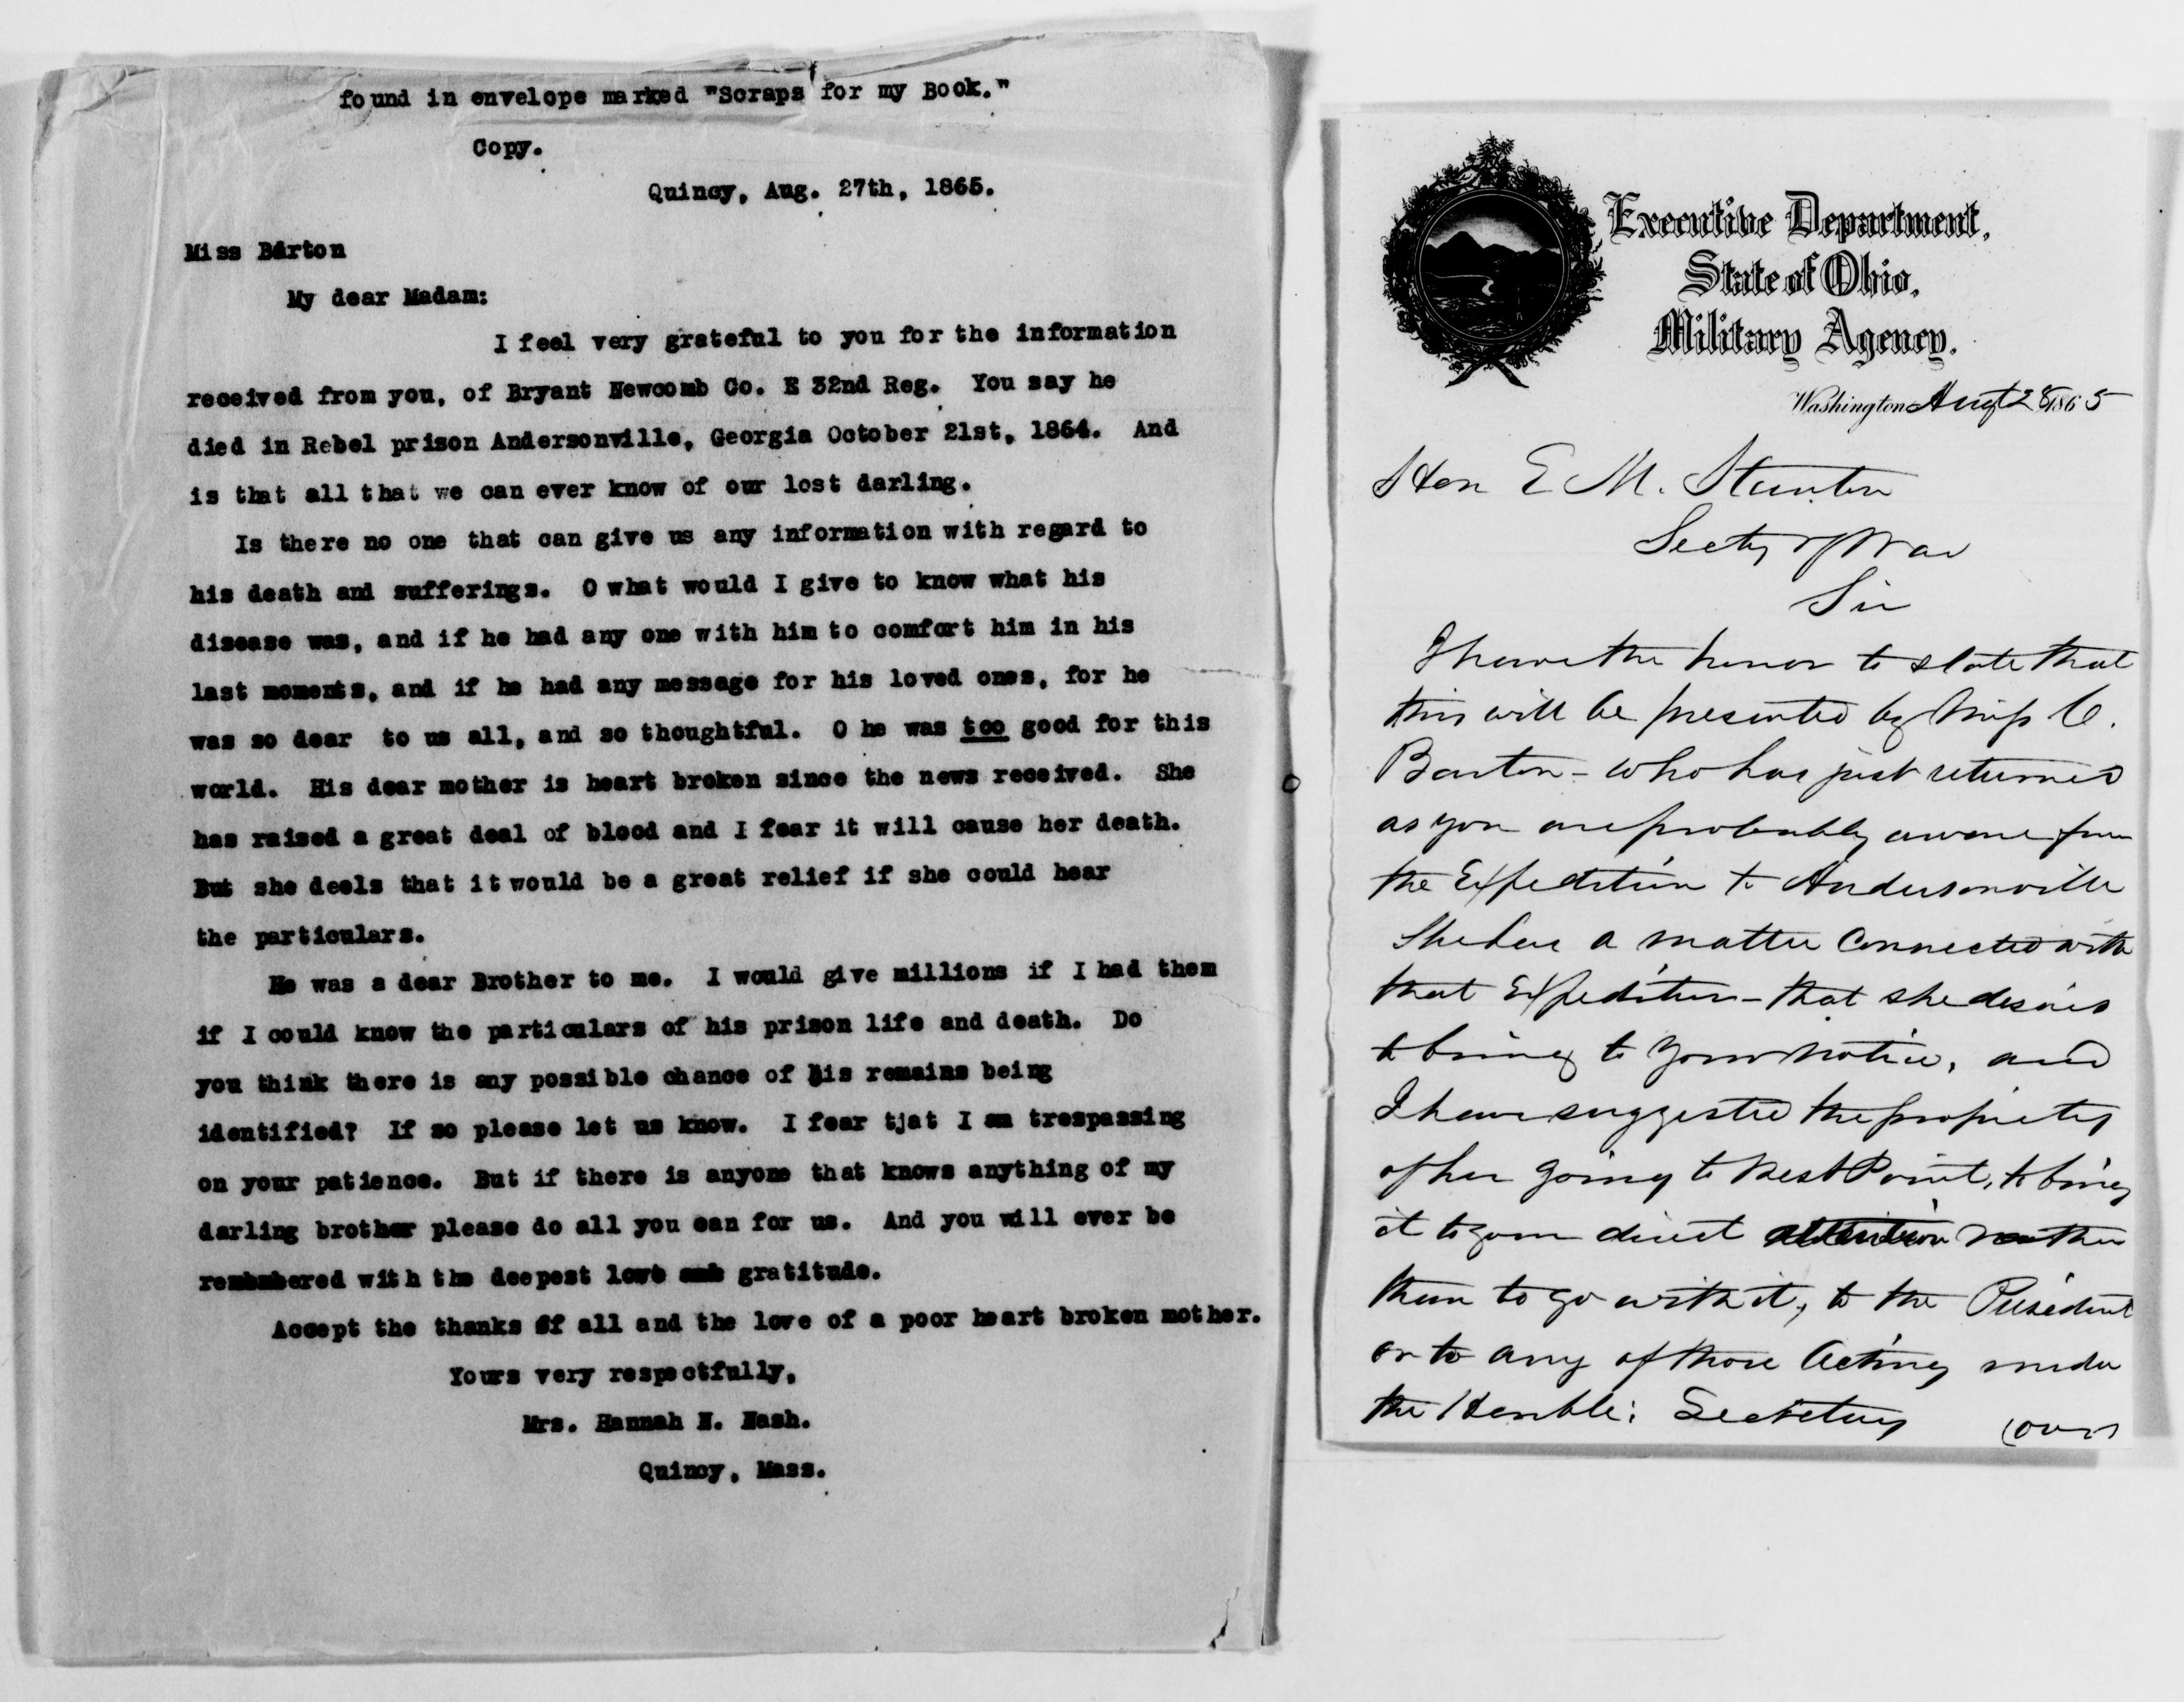 found in envelope marked "Scraps for my Book."
Copy.
Quincy, Aug. 27th, 1865.
Miss Barton
My dear Madam:
I feel very grateful to you for the information
received from you, of Bryant Newcomb Co. E 32nd Reg. You say he
died in Rebel prison Andersonville, Georgia October 21st, 1864. And
is that all that we can ever know of our lost darling.
Is there no one that can give us any information with regard to
his death and sufferings. O what would I give to know what his
disease was, and if he had any one with him to comfort him in his
last moments, and if he had any message for his loved ones, for he
was so dear to us all, and so thoughtful. O he was too good for this
world. His dear mother is heart broken since the news received. She
has raised a great deal of blood and I fear it will cause her death.
But she deels that it would be a great relief if she could hear
the particulars.
He was a dear Brother to me. I would give millions if I had them
if I could know the particulars of his prison life and death. Do
you think there is any possible chance of his remains being
identified? If so please let us know. I fear tjat I am trespassing
on your patience. But if there is anyone that knows anything of my
darling brother please do all you can for us. And you will ever be
remembered with the deepest love and gratitude.
Accept the thanks of all and the love of a poor heart broken mother.
Yours very respectfully,
Mrs. Hannah N. Nash.
Quincy, Mass.
Executive Department,
State of Ohio,
Military Agency.
Washington Augt 28 1865
Hon E M. Stanton
Secty of War
Sir
I have the honor to state that
this will be presented by Miss C.
Barton - who has just returned
as you are probably aware from
the Expedition to Andersonville
She has a matter connected with
that Expedition - that she desires
to bring to your notice, and
I have suggested the propriety
of her going to West Point, to bring
it to your direct attention rather
than to go with it, to the President
or to any of those acting under
the Honble: Secretary (over